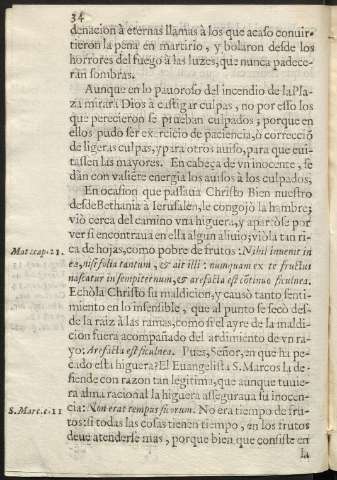 34
denacion à eternas llamas à los que acaso conuir-
tieron la pena en martirio, y bolaron desde los
horrores del fuego à las luzes, que nunca padece-
ràn sombras.
Aunque en lo pauoroso del incendio de la Pla-
za miràra Dios à castigar culpas, no por esso los
que perecieron se prueban culpados; porque en
ellos pudo ser exercicio de paciencia, ò correcciõ
de ligeras culpas, y para otros auiso, para que eui-
tassen las mayores. En cabeça de vn inocente, se
dàn con valiẽte energia los auisos à los culpados.
En ocasion que passaua Christo Bien nuestro
desde Bethania à Ierusalen, le congojò la hambre;
viò cerca del camino vna higuera, y apartòse por
ver si encontraua en ella algun aliuio; viòla tan ri-
Mat. cap. 21.
ca de hojas, como pobre de frutos: Nihil inuenit in
ea, nisi folia tantum, & ait illi: nunquam ex te fructus
nascatur in sempiternum, & arefacta est cõtinuò ficulnea.
Echòla Christo su maldicion, y causò tanto senti-
miento en lo insensible, que al punto se secò des-
de la raiz à las ramas, como si el ayre de la maldi-
cion fuera acompañado del ardimiento de vn ra-
yo: Arefacta est ficulnea. Pues, Señor, en que ha pe-
cado esta higuera? El Euangelista S. Marcos la de-
fiende con razon tan legitima, que aunque tuuie-
ra alma racional la higuera asseguraua su inocen-
S. Marc. c. 11
cia: Non erat tempus ficorum. No era tiempo de fru-
tos: si todas las cosas tienen tiempo, en los frutos
deue atenderse mas, porque bien que consiste en
la